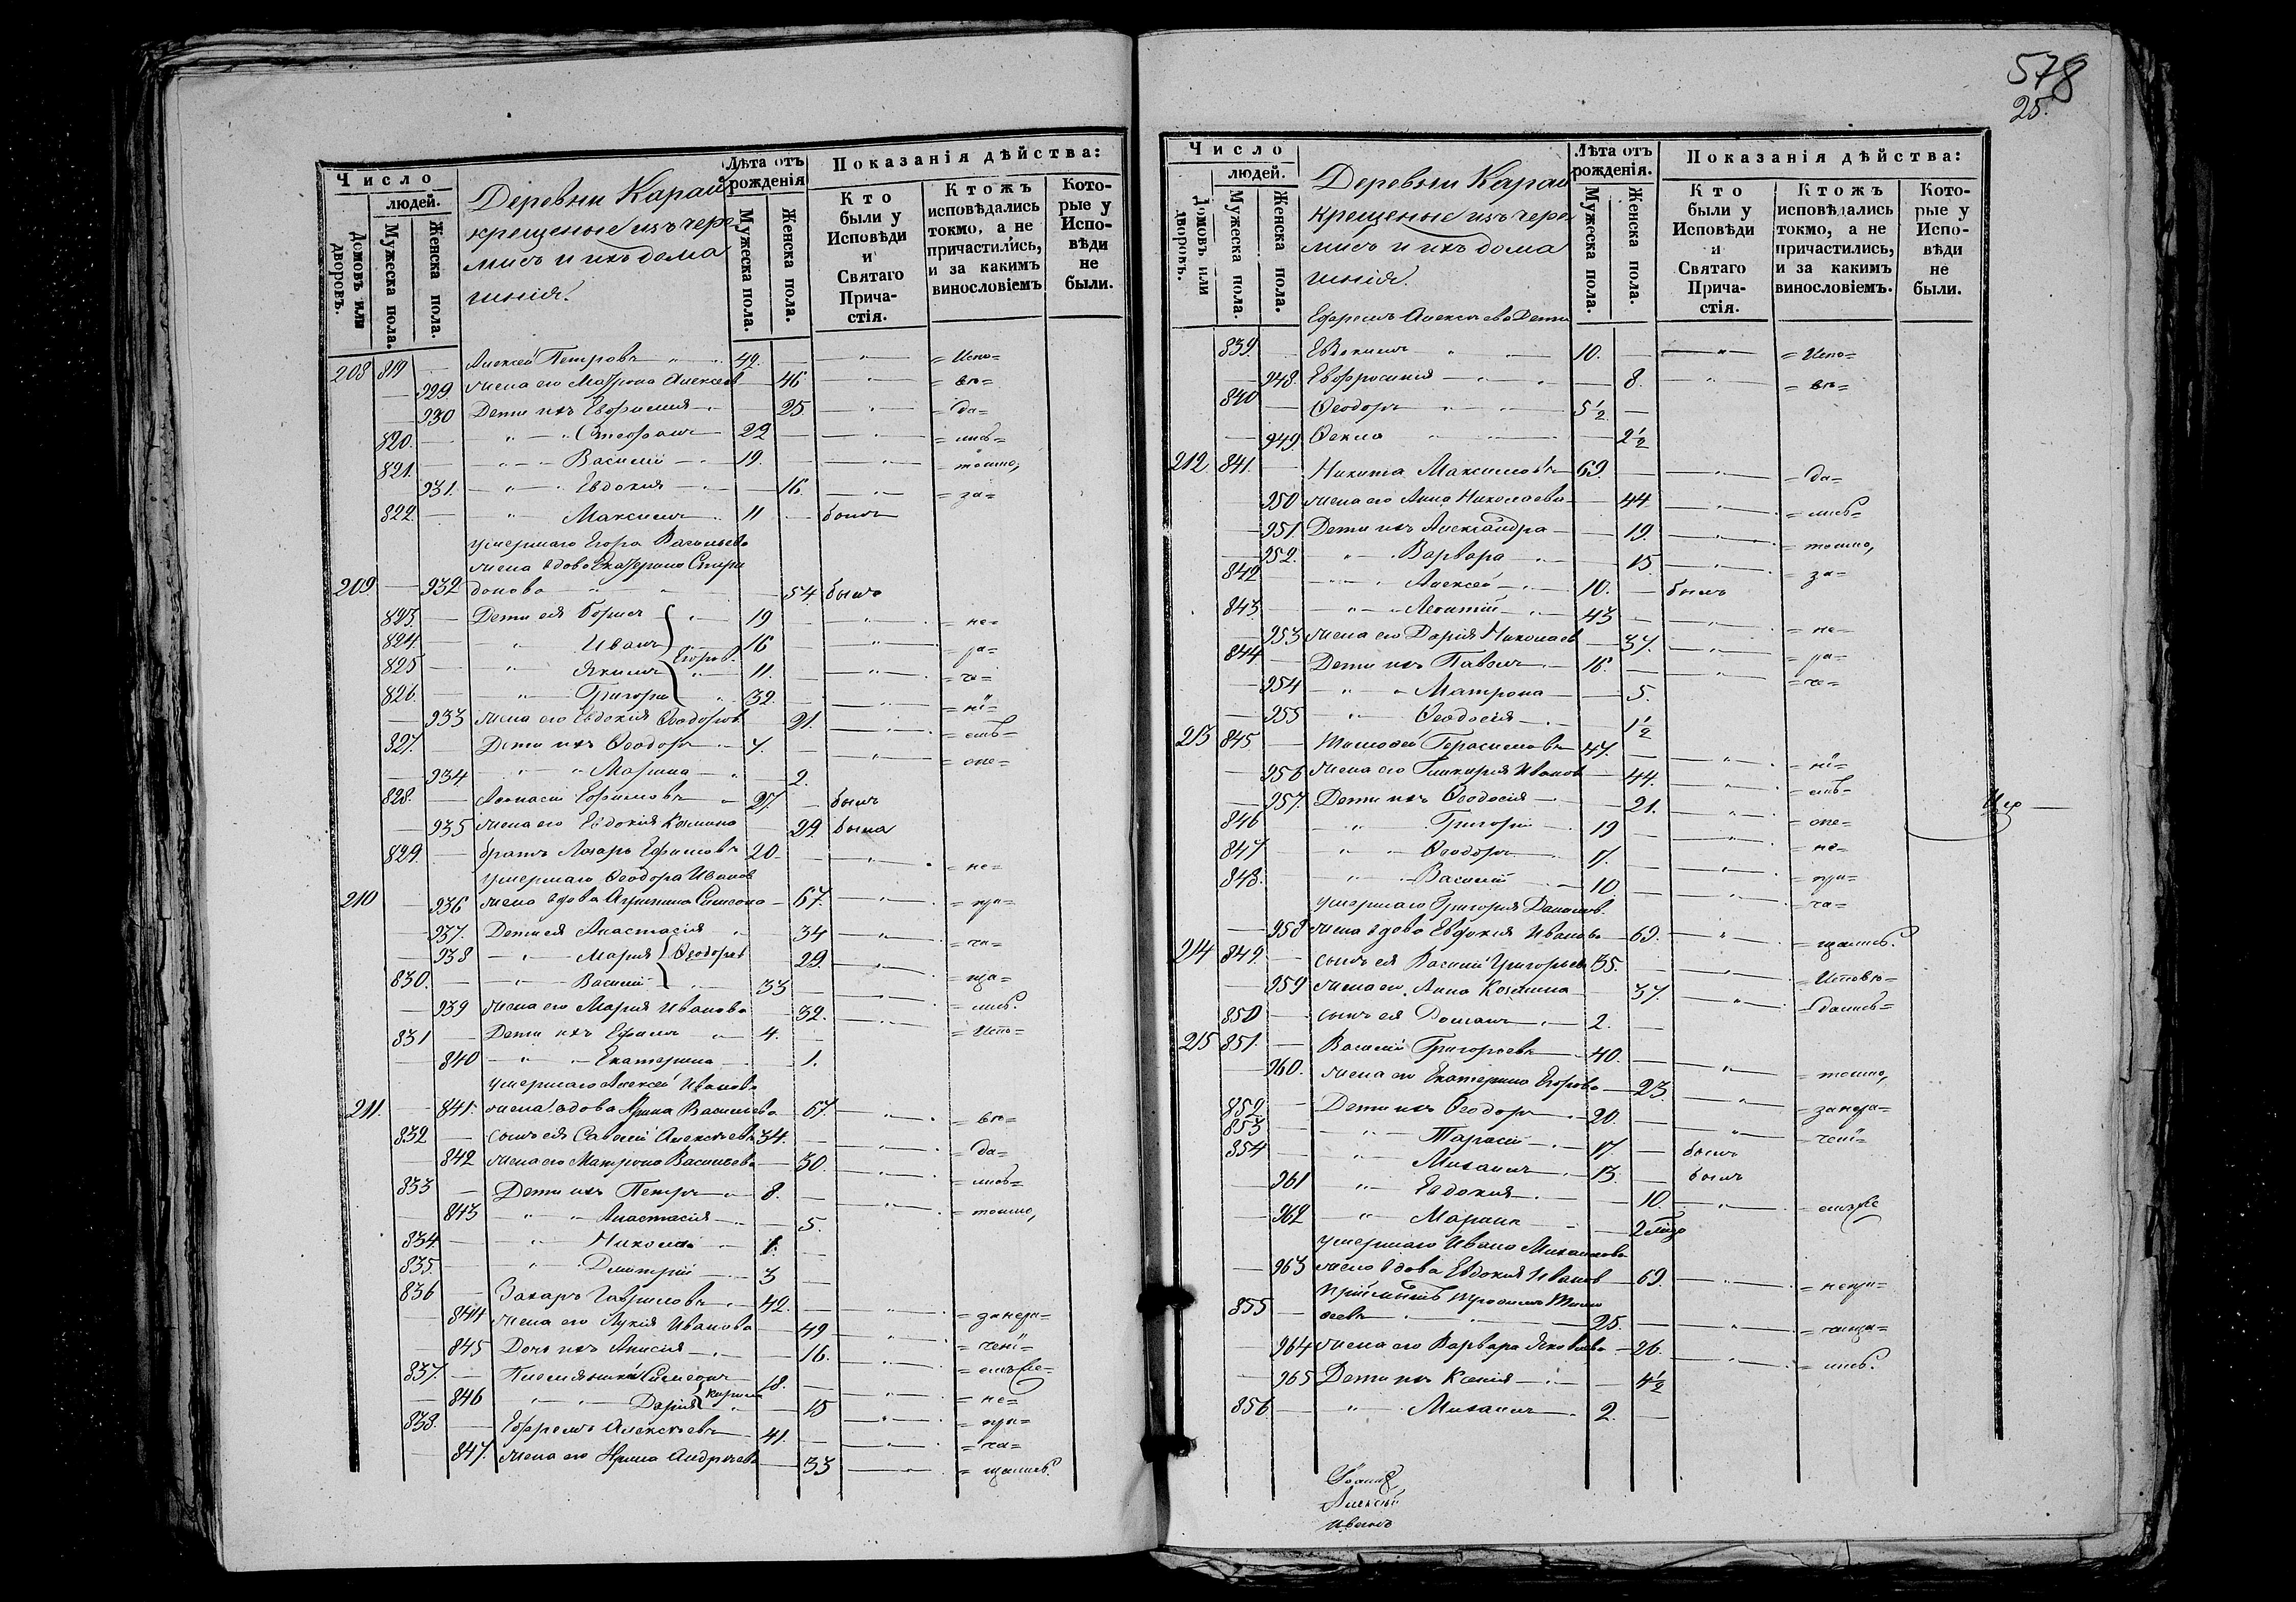 578
25.
Число
людей.
Домовъ или дворовъ.
Мужеска пола.
Женска пола.
Деревни Караи
крещеные изъ чере
мисъ и ихъ дома
шнія.
Лѣта отъ рожденія
Мужеска пола.
Женска пола.
Показанія дѣйства:
Кто были у Исповѣди и Святаго Прича-стія.
Ктожъ исповѣдались токмо, а не причастились, и за какимъ винословіемъ
Кото-рые у Испо-вѣди не были.
208 819 — Алексей Петровъ 49. — = Испо=
— 929. жена его Матрона Алексеев — 46 = вѣ=
— 930 Дети ихъ Евфимия — 25 = да=
820. — Стефанъ 22 — = лись=
821. — Василій 19. — = токмо,
— 931. Евдокия — 16 = за=
822. — Максимъ 11 — былъ
умершаго Егора Васильева
жена вдова Екатерина Спири
209. — 932 донова — 54. была
823. — Дети ея Борисъ 19 — = не=
824. — Иванъ 16 — = ра=
825 — Якимъ Егоров. 11. — = че=
826. — Григорій 32. — = ні=
— 933 жена его Евдокія Ѳеодоров. — 21. = емъ=
827. — Дети ихъ Ѳеодоръ 4. — = опе=
— 934. Марина — 2.
828. — Афонасій Ефимовъ 27. — былъ
— 935 жена его Евдокия Козмина — 29. была
829. — братъ Лазарь Ефимовъ 20. — = не=
умершаго Ѳеодора Иванов
210 — 936 жена вдова Агрипина Самсоно — 67. = при=
— 937. Дети ея Анастасія — 34 = ча=
— 938 Мария Ѳеодоров — 29. = ща=
830. — Василий 33 — = лись.
— 939 жена его Мария Иванова — 32. = Испо=
831 — Дети ихъ Ефимъ 4. —
— 840 Екатерина — 1.
умершаго Алексей Иванова
211. — 841. жена вдова Ирина Васильева — 67. = вѣ=
832 — сынъ ея Савелий Алексѣевъ 34. — = да=
— 842 жена его Матрона Васильева — 30. = лись=
833 — Дети ихъ Петръ 8. — = токмо,
— 843 Анастасия — 5.
834. — Николай 1. —
835. — Дмитрій 3 —
836 — Захаръ Гавриловъ 42. — = занера=
— 844 жена его Лукія Иванова — 49 = чені=
— 845 Дочь ихъ Анисія — 16.
837. — Племянники Симеонъ 18. — = не=
— 846 Дария — 15 = при=
838. — Ефремъ Алексѣевъ 41. — = ча=
— 847. жена его Ирина Андреева — 33 = щались.
Число
людей.
Домовъ или дворовъ.
Мужеска пола.
Женска пола.
Деревни Караи
крещеные изъ чере
мисъ и ихъ дома
шнія.
Лѣта отъ рожденія.
Мужеска пола.
Женска пола.
Показанія дѣйства:
Кто были у Исповѣди и Святаго Прича-стія.
Ктожъ исповѣдались токмо, а не причастились, и за какимъ винословіемъ.
Кото-рые у Испо-вѣди не были.
Ефремъ Алексѣева Дети
839. Евдокимъ 10. — = Испо=
— 948. Евфросиния — 8. = вѣ=
840 — Ѳеодоръ 5½ —
— 949. Ѳекла — 2½
212. 841. — Никита Максимовъ 69. — = да=
— 950 жена его Анна Николаева — 44. = лись=
— 951. Дети ихъ Александра — 19. = токмо,
— 952. Варвара — 15 = за=
842 Алексей 10. — былъ
843. Леонтий 43 — = не=
— 953 жена его Дария Николаев — 37. = ра=
844 — Дети ихъ Павелъ 16. — = че=
— 954 Матрона — 5.
— 955 Ѳеодосія — 1½
213 845 — Тимофей Герасимовъ 47. — = ні=
— 956 жена его Гликерия Иванов — 44. = емъ=
— 957. Дети ихъ Ѳеодосия — 21. = опе=
846 Григорій 19 — = не=
847 Ѳеодоръ 17. — = при=
848. Василий 10. — = ча=
умершаго Григория Данилов.
— 958 жена вдова Евдокия Иванова — 69. = щались.
214 849. — сынъ ея Василий Григорьев 35. — = Исповѣ=
— 959 жена его Анна Козмина — 37. = дались=
850 — сынъ ея Романъ 2. —
215 851. — Василий Григорьевъ 40. — = токмо,
— 960. жена его Екатерина Егорова — 23. = занера=
852 — Дети ихъ Ѳеодоръ 20. — = чені=
853 Тарасій 17. — былъ
854 — Михаилъ 13. — былъ
— 961 Евдокия — 10.
— 962 Марина — 2
умершаго Ивана Михаилова
— 963 жена вдова Евдокия Иванов — 69. = непри=
пріемышъ Трофимъ Тимо
855 — феевъ 25. — = чаща=
— 964 жена его Варвара Яковлева — 26. = лись.
— 965 Дети ихъ Ксения — 4½
856. — Михаилъ 2. —
Алексѣй
Иванъ